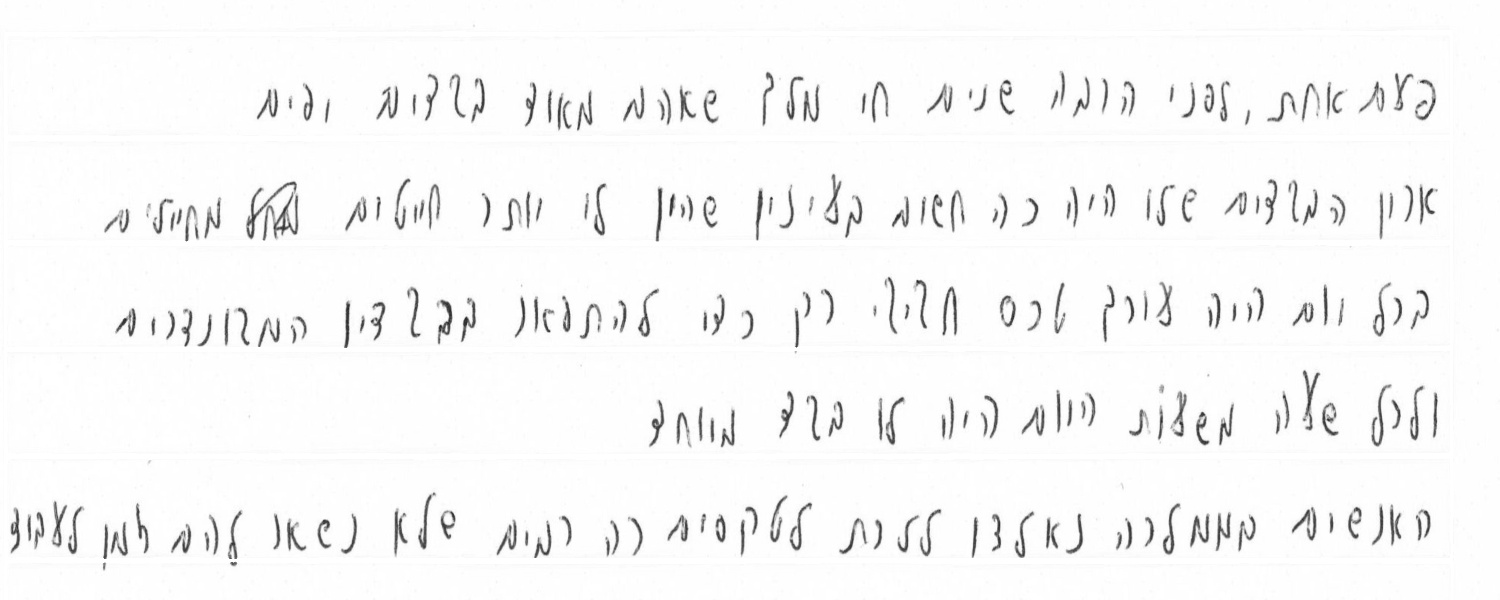 פעם אחת, לפני הרבה שנים חי מלך שאהב מאוד בגדים יפים
ארון הבגדים שלו היה כה חשוב בעיניו שהיו לו יותר חייטים מחיילים
בכל יום היה עורך טכס חגיגי רק כדי להתגאות בבגדיו המהודרים
ולכל שעה משעות היום היה לו בגד מיוחד
האנשים בממלכה נאלצו ללכת לטקסים כה רבים שלא נשאר להם זמן לעבוד